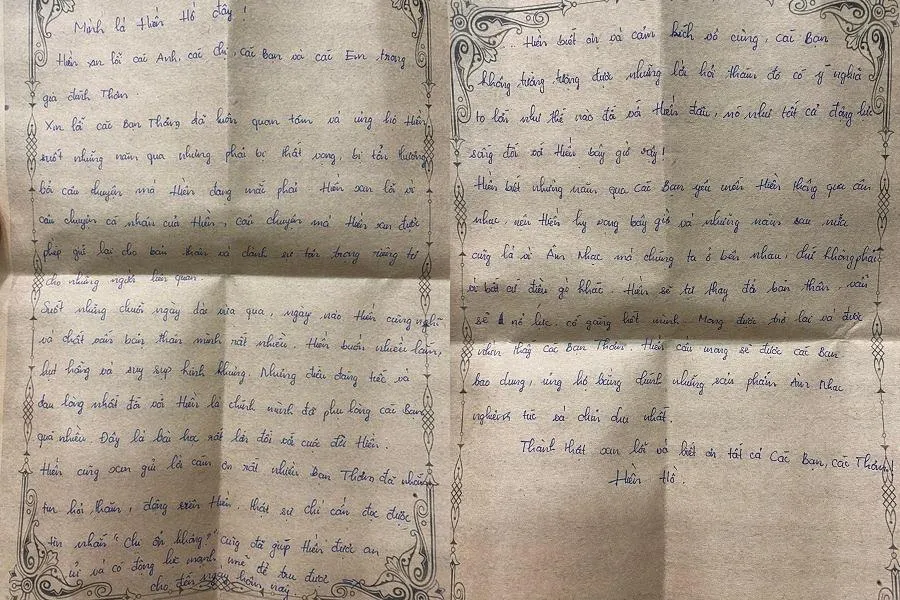 Mình là Hiền Hồ đây !
Hiền xin lỗi các Anh, các chị, các Bạn và các Em trong
gia đình Thơm.
Xin lỗi các Bạn Thơm đã luôn quan tâm và ủng hộ Hiền
suốt những năm qua nhưng phải bị thất vọng, bị tổn thương
bởi câu chuyện mà Hiền đang mắc phải. Hiền xin lỗi vì
câu chuyện cá nhân của Hiền, câu chuyện mà Hiền xin được
phép giữ lại cho bản thân và dành sự tôn trọng riêng tư
cho những người liên quan.
Suốt những chuỗi ngày dài vừa qua, ngày nào Hiền cũng nghĩ
và chất vấn bản thân mình rất nhiều. Hiền buồn nhiều lắm,
hụt hẫng và suy sụp kinh khủng. Những điều đáng tiếc và
đau lòng nhất đối với Hiền là chính mình đã phụ lòng các Bạn
quá nhiều. Đây là bài học rất lớn đối với cuộc đời Hiền.
Hiền cũng xin gửi lời cảm ơn rất nhiều Bạn Thơm đã nhắn
tin hỏi thăm, động viên Hiền. Thật sự chỉ cần đọc được
tin nhắn "Chị ổn không?" cũng đã giúp Hiền được an
ủi và có động lực mạnh mẽ để trụ được
cho đến ngày hôm nay.
Hiền biết ơn và cảm kích vô cùng, các Bạn
không tưởng tượng được những lời hỏi thăm đó có ý nghĩa
to lớn như thế nào đối với Hiền đâu, nó như tất cả động lực
sống đối với Hiền bây giờ vậy!
Hiền biết những năm qua các Bạn yêu mến Hiền thông qua âm
nhạc, nên Hiền hy vọng bây giờ và những năm sau nữa
cũng là vì Âm Nhạc mà chúng ta ở bên nhau, chứ không phải
vì bất cứ điều gì khác. Hiền sẽ tự thay đổi bản thân, vẫn
sẽ nỗ lực, cố gắng hết mình. Mong được trở lại và được
nhìn thấy các Bạn Thơm. Hiền cầu mong sẽ được các Bạn
bao dung, ủng hộ bằng chính những sản phẩm Âm Nhạc
nghiêm túc và chỉn chu nhất.
Thành thật xin lỗi và biết ơn tất cả Các Bạn, các Thơm!
Hiền Hồ.